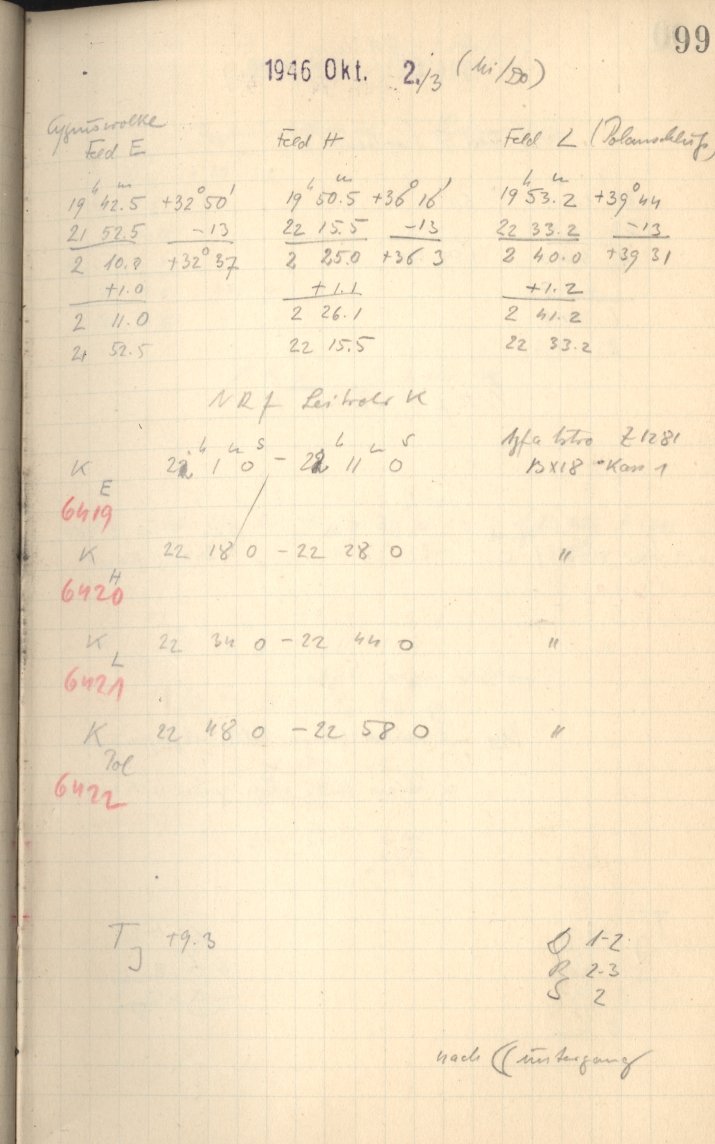 99
1946 Okt. 2./3 (Mi/Do)
Cygnuswolke
Feld E Feld H Feld L (Polanschluß)
19ʰ 42.5ᵐ +32° 50' 19ʰ 50.5ᵐ +36° 16' 19ʰ 53.2ᵐ +39° 44
21 52.5 -13 22 15.5 -13 22 33.2 -13
2 10.0 +32° 37 2 25.0 +36 3 2 40.0 +39 31
+1.0 +1.1 +1.2
2 11.0 2 26.1 2 41.2
21 52.5 22 15.5 22 33.2
NRf Leitrohr K
K E 22ʰ 1ᵐ 0ˢ - 22ʰ 11ᵐ 0ˢ Agfa Astro Z1281
BX18 Kass 1
6419
K H 22 18 0 - 22 28 0 "
6420
K L 22 34 0 - 22 44 0 "
6421
K Pol 22 48 0 - 22 58 0 "
6422
T J +9.3 D 1-2
R 2-3
S 2
nach ☾ untergang